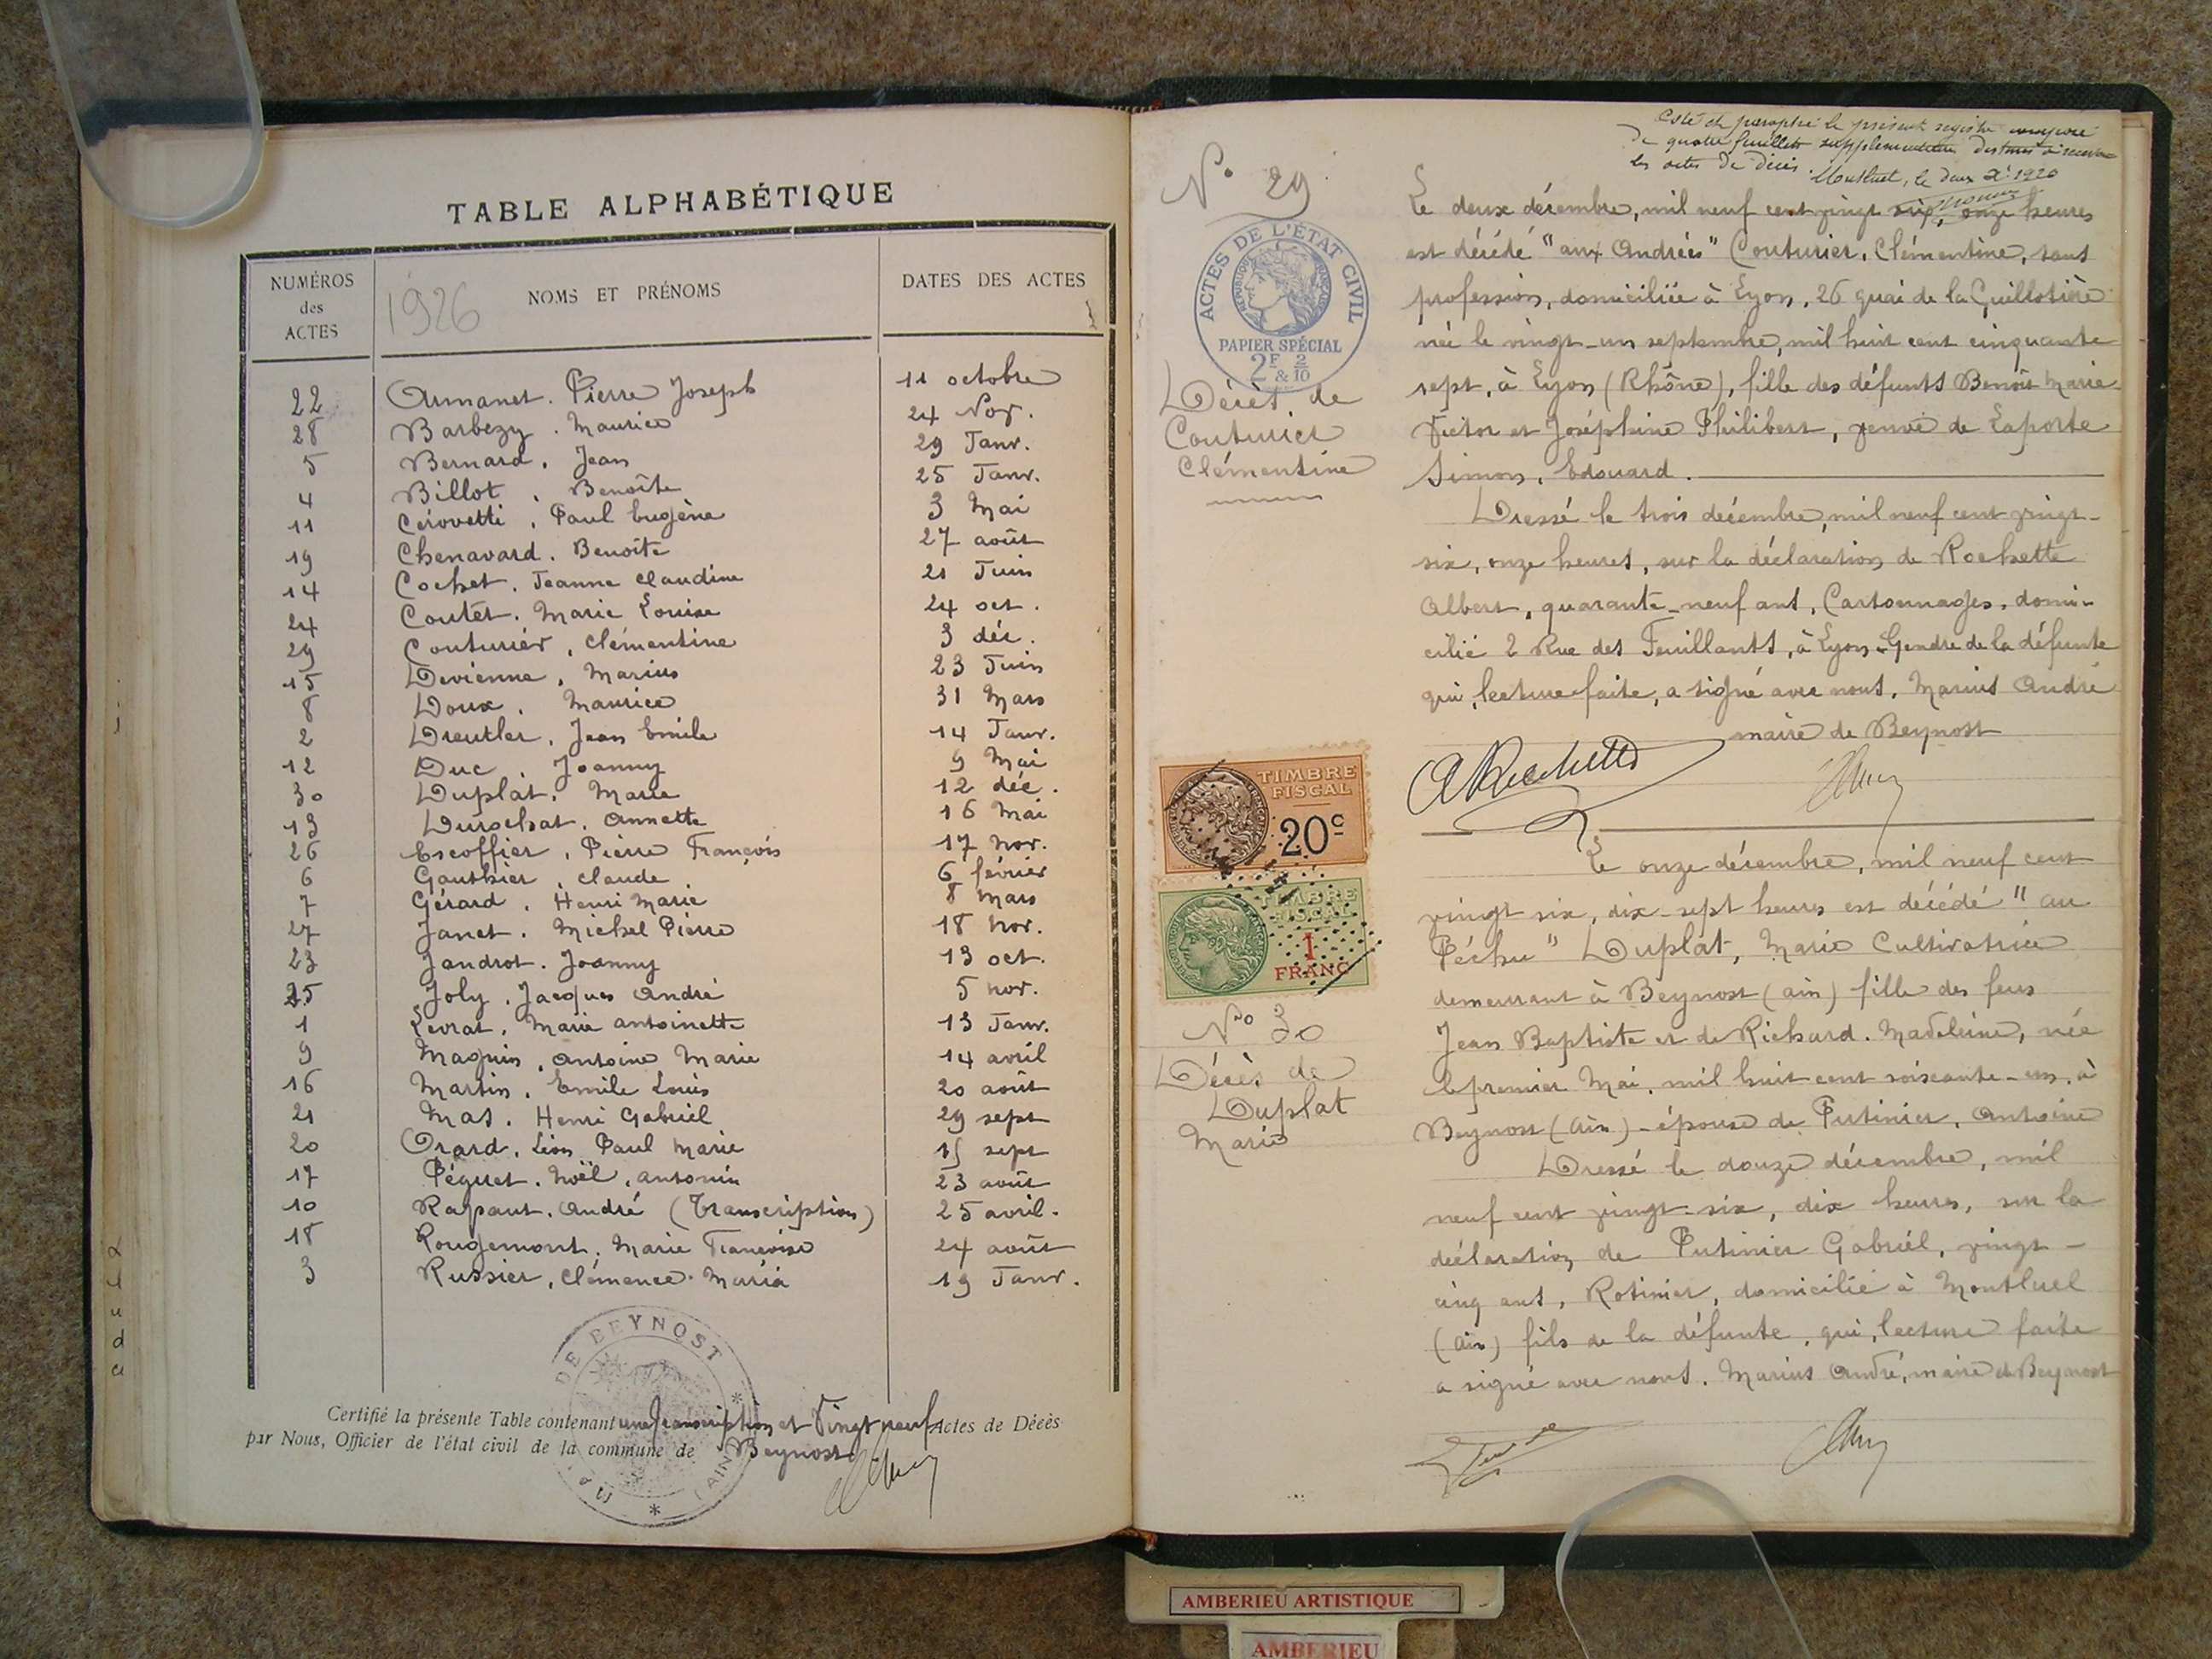 TABLE ALPHABÉTIQUE
NUMÉROS
des
ACTES
1926
NOMS ET PRÉNOMS
DATES DES ACTES
22 Armanet. Pierre Joseph 11 octobre
28 Barbezy. Maurice 24 Nov.
5 Bernard. Jean 29 Janv.
4 Billot. Benoîte 25 Janv.
11 Cérovetti, Paul Eugène 3 Mai
19 Chenavard. Benoîte 27 août
14 Cochet. Jeanne Claudine 21 Juin
24 Coutet. Marie Louise 24 oct.
29 Couturier, Clémentine 3 déc.
15 Devienne, Marius 23 Juin
8 Doux. Maurice 31 Mars
2 Dreutler. Jean Emile 14 Janv.
12 Duc. Joanny 9 Mai
30 Duplat. Marie 12 déc.
13 Durochat. Annette 16 Mai
26 Escoffier, Pierre François 17 nov.
6 Gauthier, Claude 6 février
7 Gérard, Henri Marie 8 Mars
27 Janet. Michel Pierre 18 nov.
23 Jandrot. Joanny 13 oct.
25 Joly. Jacques André 5 nov.
1 Levrat, Marie Antoinette 13 Janv.
9 Magnin, Antoine Marie 14 avril
16 Martin, Emile Louis 20 août
21 Mas. Henri Gabriel 29 sept
20 Orard, Léon Paul Marie 15 sept
17 Péguet. Noël, Antonin 23 août
10 Rapaut. André (Transcription) 25 avril.
18 Rougemont, Marie Françoise 24 août
3 Russier, Clémence Maria 19 Janv.
DE BEYNOST
(AIN)
Certifié la présente Table contenant une Transcription et Vingt neuf Actes de Décès
par Nous, Officier de l'état civil de la commune de Beynost
No 29
ACTES DE L'ÉTAT CIVIL
PAPIER SPÉCIAL
2F & 2/10
Décès de
Couturier
Clémentine
Coté et paraphé le présent registre composé
de quatre feuillets supplémentaires destinés à recevoir
les actes de décès. Montluel, le deux Xe 1926
Le deux décembre, mil neuf cent vingt six, onze heures
est décédé "aux Andrées" Couturier, Clémentine, sans
profession, domiciliée à Lyon, 26 quai de la Guillotière
née le vingt-un septembre, mil huit cent cinquante
sept, à Lyon (Rhône), fille des défunts Benoît Marie
Victor et Joséphine Philibert, veuve de Laporte
Simon, Edouard.
Dressé le trois décembre, mil neuf cent vingt-
six, onze heures, sur la déclaration de Rochette
Albert, quarante-neuf ans, Cartonnages, domi-
cilié 2 Rue des Feuillants, à Lyon. Gendre de la défunte
qui, lecture faite, a signé avec nous, Marius André
maire de Beynost
ARochette
TIMBRE
FISCAL
20c
TIMBRE
FISCAL
1
FRANC
No 30
Décès de
Duplat
Marie
Le onze décembre, mil neuf cent
vingt six, dix-sept heures est décédé "au
Péchu" Duplat, Marie Cultivatrice
demeurant à Beynost (ain) fille des feus
Jean Baptiste et de Richard. Madeleine, née
le premier Mai, mil huit cent soixante-un, à
Beynost (Ain) - épouse de Putinier, Antoine
Dressé le douze décembre, mil
neuf cent vingt-six, dix heures, sur la
déclaration de Putinier Gabriel, vingt-
cinq ans, Rotinier, domicilié à Montluel
(Ain) fils de la défunte, qui, lecture faite
a signé avec nous. Marius André, maire de Beynost
AMBERIEU ARTISTIQUE
AMBERIEU